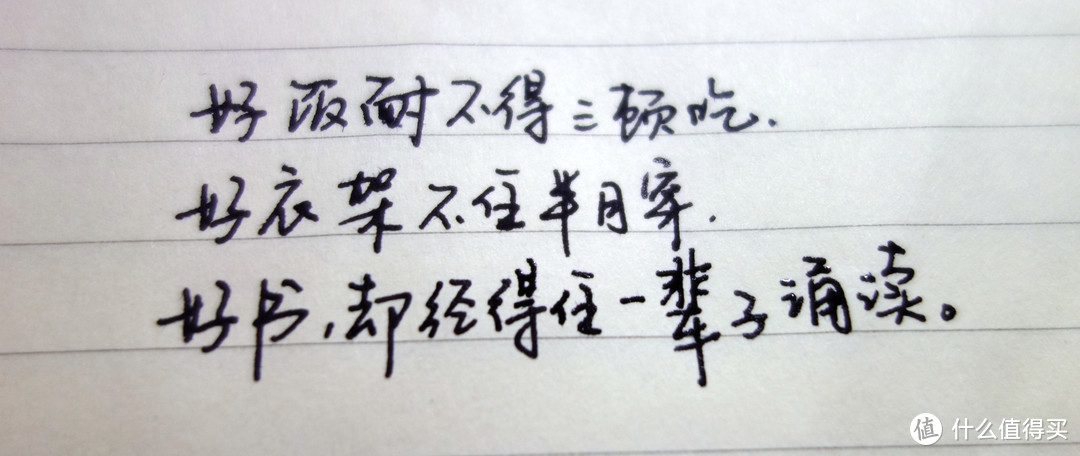 好饭耐不得三顿吃.
好衣架不住半月穿.
好书,却经得住一辈子诵读。
值 什么值得买